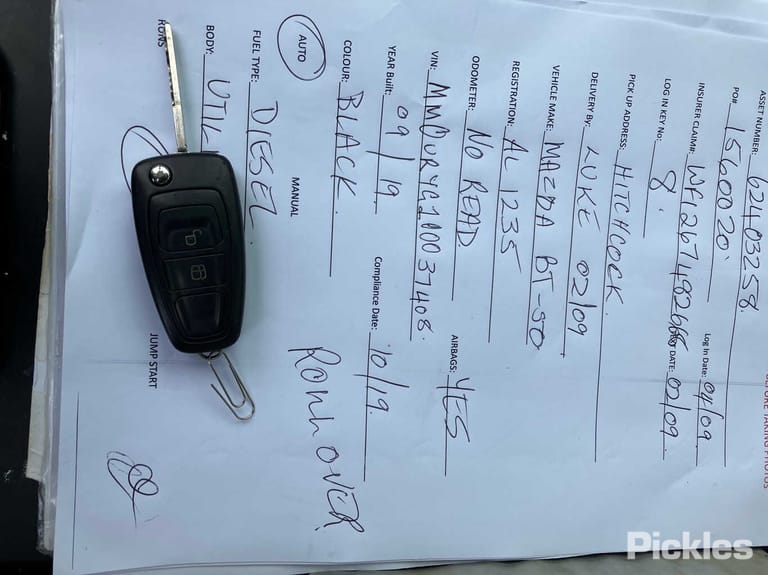 BEFORE TAKING PHOTOS
ASSET NUMBER: 62403258
PO#: 1560020
INSURER CLAIM#: WF1267482666 Log In Date: 04/09
LOG IN KEY No: 8. DATE: 02/09
PICK UP ADDRESS: HITCHCOCK
DELIVERY By: LUKE 02/09
VEHICLE MAKE: MAZDA BT-50
REGISTRATION: AL 1235
ODOMETER: NO READ AIRBAGS: YES
VIN: MM0URYG100037408
YEAR Built: 09/19 Compliance Date: 10/19
COLOUR: BLACK
AUTO MANUAL ROLLOVER
FUEL TYPE: DIESEL
BODY: UTIL
RUNS JUMP START
Pickles